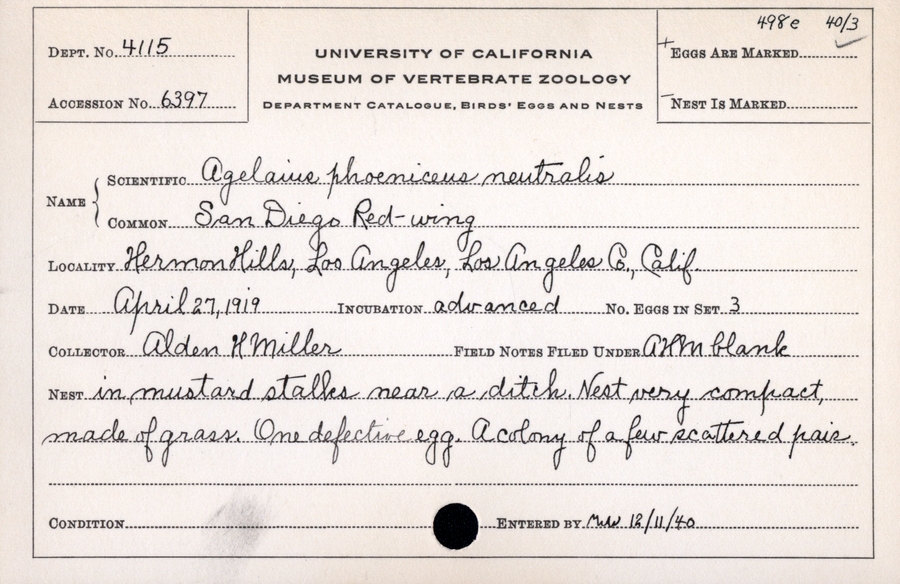 498e 40/3
DEPT. No. 4115
UNIVERSITY OF CALIFORNIA
+ EGGS ARE MARKED
MUSEUM OF VERTEBRATE ZOOLOGY
ACCESSION No. 6397
DEPARTMENT CATALOGUE, BIRDS' EGGS AND NESTS
- NEST IS MARKED
NAME { SCIENTIFIC Agelaius phoeniceus neutralis
COMMON San Diego Red-wing
LOCALITY Hermon Hills, Los Angeles, Los Angeles Co., Calif.
DATE April 27, 1919 INCUBATION advanced No. EGGS IN SET 3
COLLECTOR Alden H Miller FIELD NOTES FILED UNDER AHM blank
NEST in mustard stalks near a ditch. Nest very compact,
made of grass. One defective egg. A colony of a few scattered pais.
CONDITION ENTERED BY 12/11/40